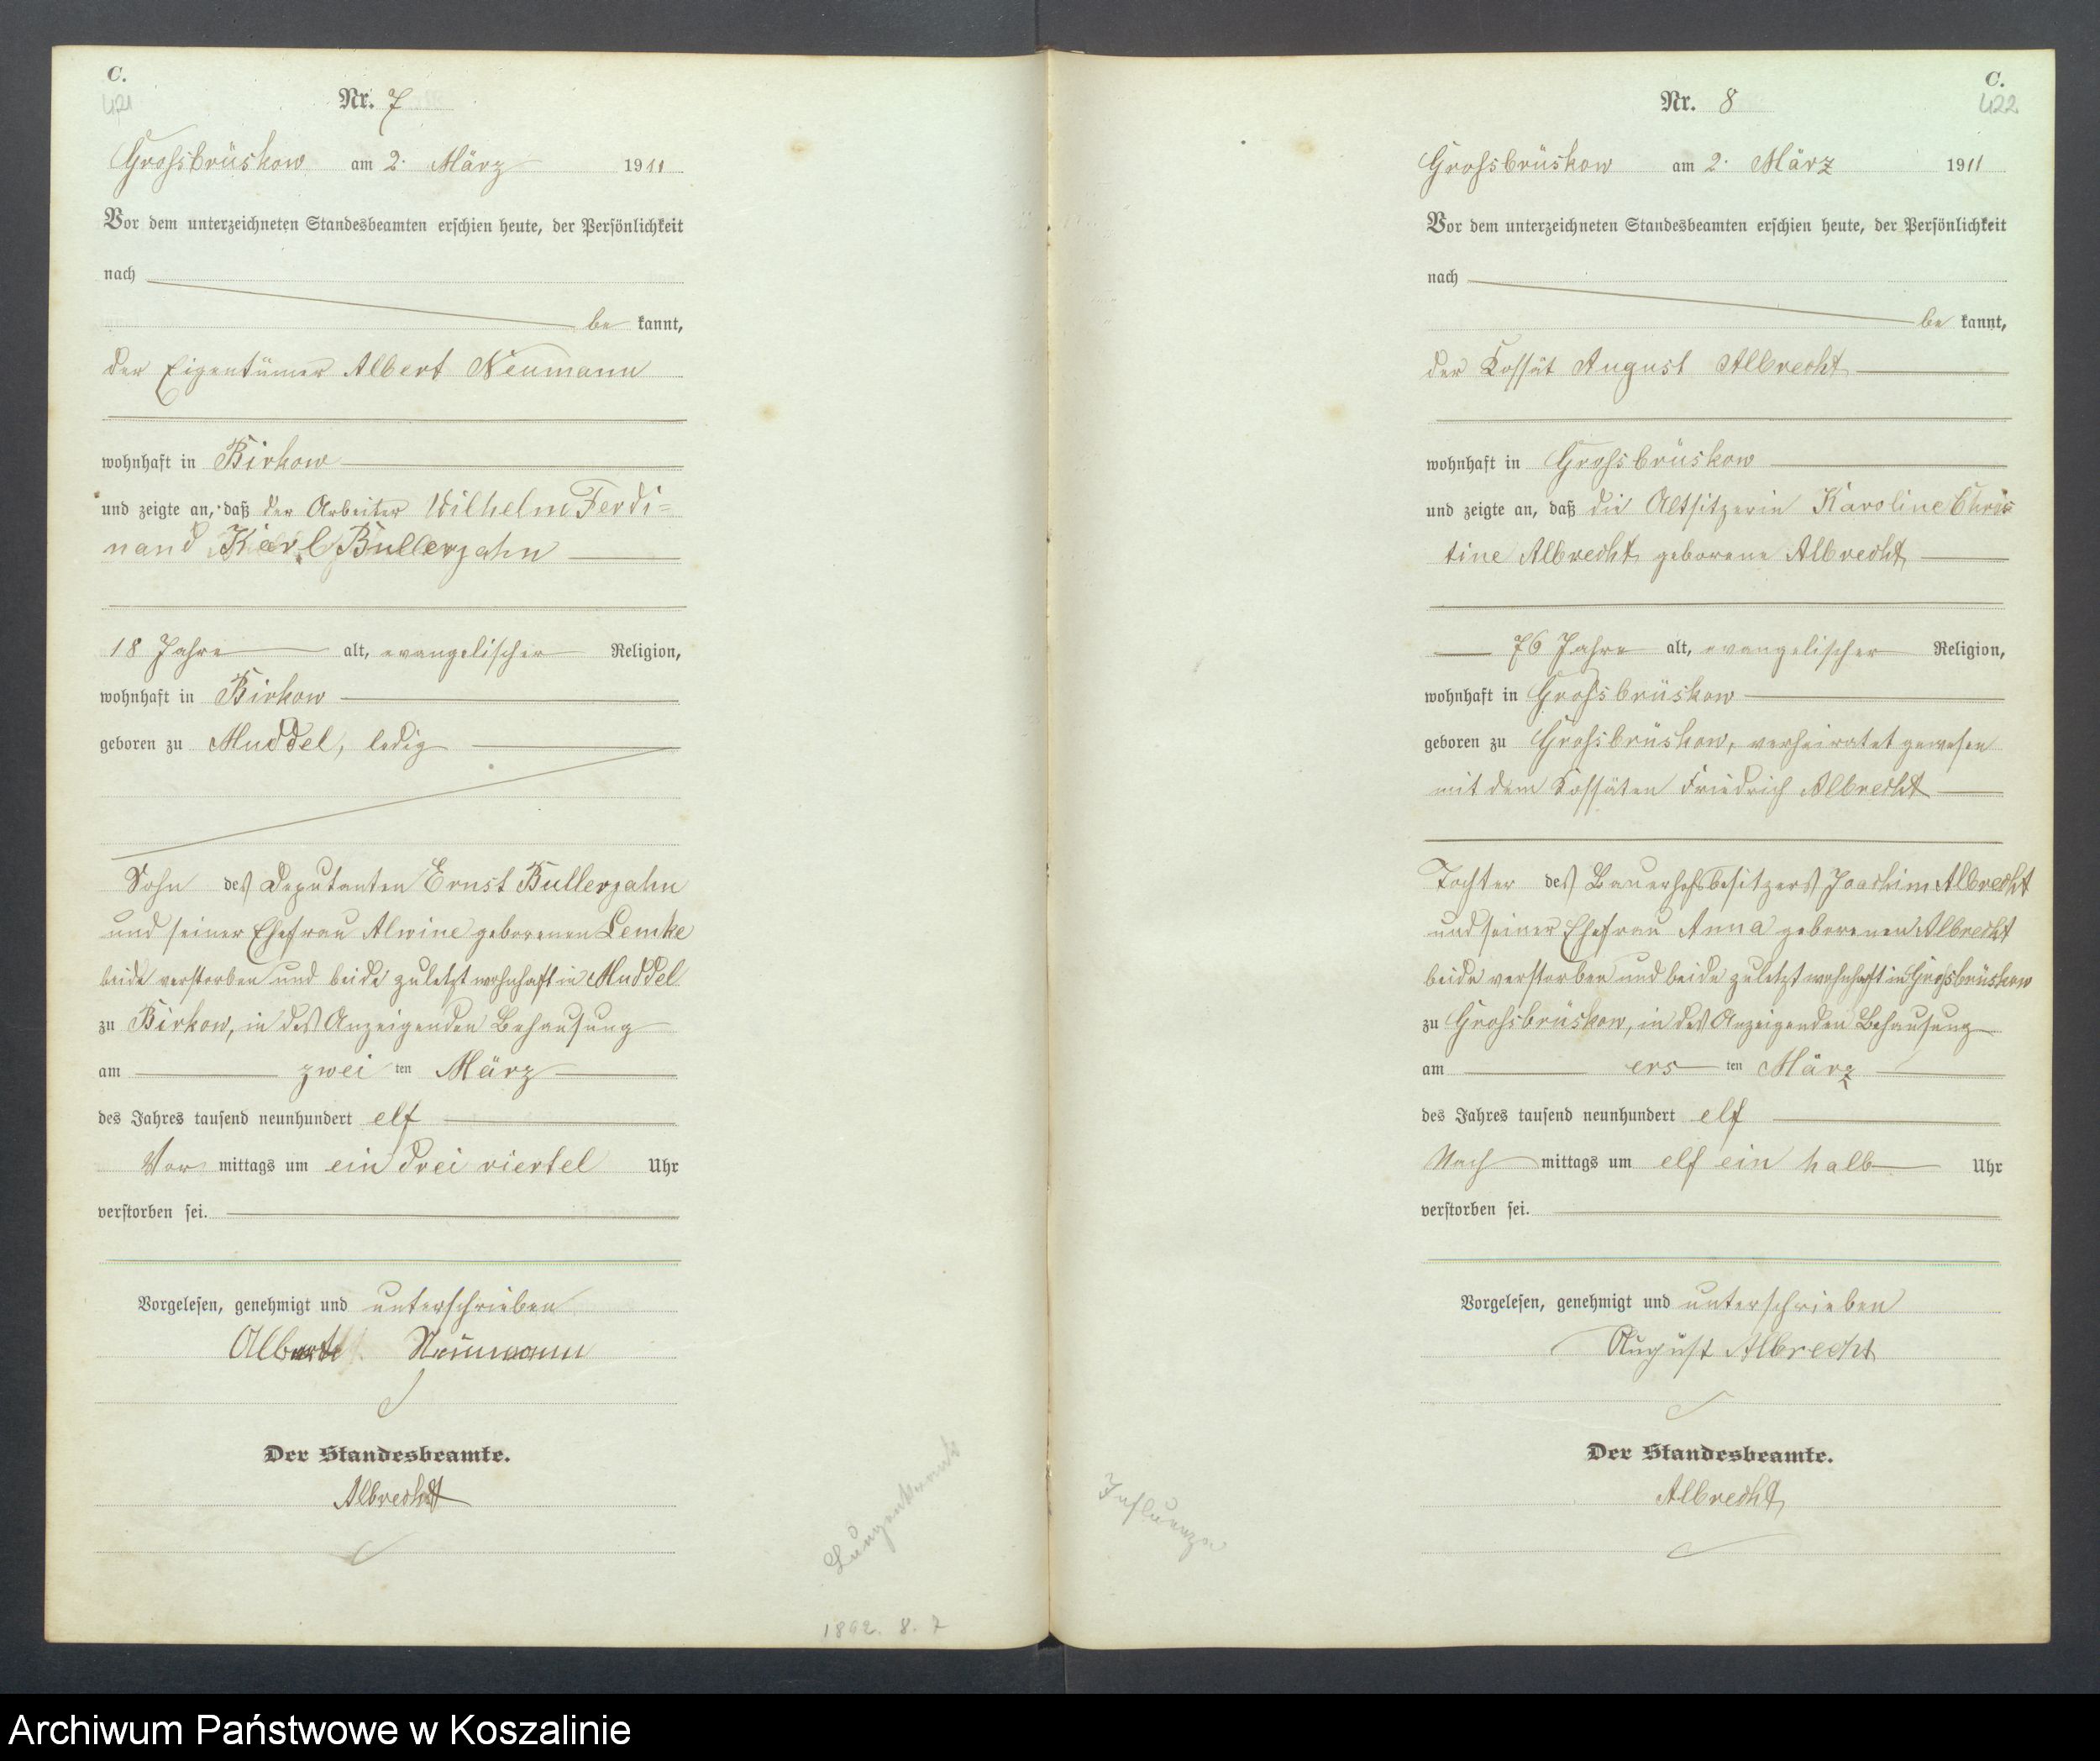 C.
421
Nr. 7
Grossbrüskow am 2. März 1911
Vor dem unterzeichneten Standesbeamten erschien heute, der Persönlichkeit
nach
be kannt,
der Eigentümer Albert Neumann
wohnhaft in Birkow
und zeigte an, daß der Arbeiter Wilhelm Ferdi=
nand Karl Bullerjahn
18 Jahre alt, evangelischer Religion,
wohnhaft in Birkow
geboren zu Muddel, ledig
Sohn des Deputanten Ernst Bullerjahn
und seiner Ehefrau Alwine geborenen Lemke
beide verstorben und beide zuletzt wohnhaft in Muddel
zu Birkow, in des Anzeigenden Behausung
am zwei ten März
des Jahres tausend neunhundert elf
Vor mittags um ein drei viertel Uhr
verstorben sei.
Vorgelesen, genehmigt und unterschrieben
Albert Neumann
Der Standesbeamte.
Albrecht
1892. 8. 7
C.
422
Nr. 8
Grossbrüskow am 2. März 1911
Vor dem unterzeichneten Standesbeamten erschien heute, der Persönlichkeit
nach
be kannt,
der Kossät August Albrecht
wohnhaft in Grossbrüskow
und zeigte an, daß die Altsitzerin Karoline Chris
tine Albrecht geborene Albrecht
76 Jahre alt, evangelischer Religion,
wohnhaft in Grossbrüskow
geboren zu Grossbrüskow, verheiratet gewesen
mit dem Kossäten Friedrich Albrecht
Tochter des Bauerhofsbesitzers Joachim Albrecht
und seiner Ehefrau Anna geborenen Albrecht
beide verstorben und beide zuletzt wohnhaft in Grossbrüskow
zu Grossbrüskow, in des Anzeigenden Behausung
am ers ten März
des Jahres tausend neunhundert elf
Nach mittags um elf ein halb Uhr
verstorben sei.
Vorgelesen, genehmigt und unterschrieben
August Albrecht
Der Standesbeamte.
Albrecht
Influenza
Archiwum Państwowe w Koszalinie